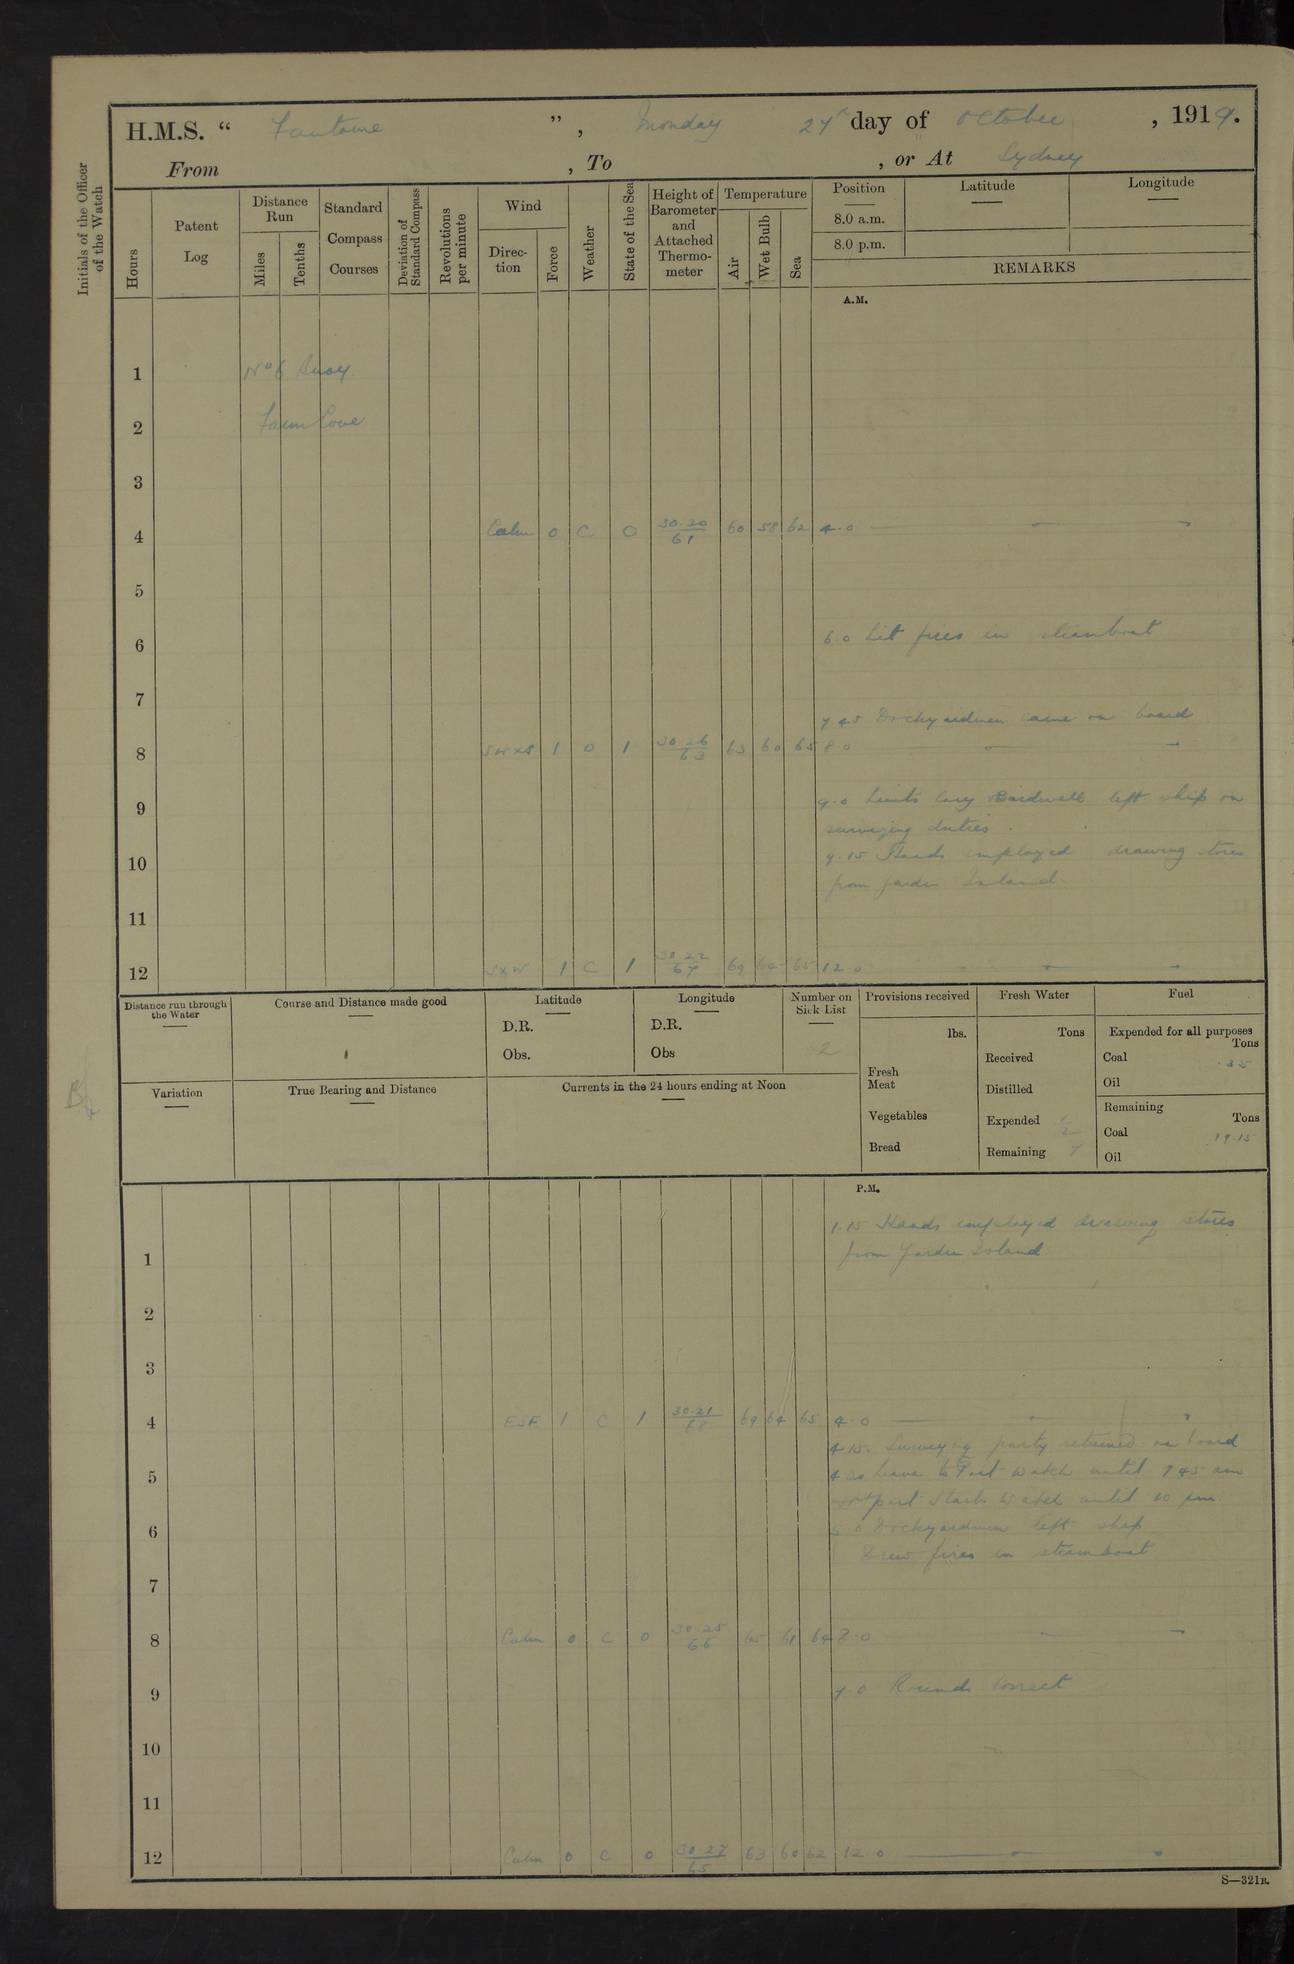 H.M.S. “ Fantome ”, Monday 27th day of October, 1919.
From , To , or At Sydney
Initials of the Officer of the Watch
Hours
Patent Log
Distance Run
Miles
Tenths
Standard Compass Courses
Deviation of Standard Compass
Revolutions per minute
Wind
Direction
Force
Weather
State of the Sea
Height of Barometer and Attached Thermometer
Temperature
Air
Wet Bulb
Sea
Position
8.0 a.m.
8.0 p.m.
Latitude
Longitude
REMARKS
A.M.
1 No 6 Buoy
2 Farm Cove
3
4 Calm 0 C 0 30.20/61 60 58 62 4.0
5
6 6.0 Lit fires in steamboat
7
7 45 Dockyardmen came on board
8 SWxS 1 0 1 30.26/63 63 60 65 8.0
9 9.0 Lieuts Bardwell left ship on
surveying duties.
10 9.15 Hands employed drawing stores
from Garden Island.
11
12 SxW 1 C 1 30.22/67 69 64 65 12.0
Distance run through the Water
Course and Distance made good
Latitude
D.R.
Obs.
Longitude
D.R.
Obs
Number on Sick List
2
Provisions received
lbs.
Fresh Meat
Vegetables
Bread
Fresh Water
Tons
Received
Distilled
Expended
Remaining
Fuel
Expended for all purposes
Tons
Coal .35
Oil
Remaining
Tons
Coal 19.15
Oil
Variation
True Bearing and Distance
Currents in the 24 hours ending at Noon
P.M.
1.15 Hands employed drawing stores
1 from Garden Island
2
3
4 ESE 1 C 1 30.21/68 69 64 65 4.0
4 15. Surveying party returned on board
5 4 30 Leave to Port Watch until 7 45 am
part Starb Watch until 10 pm
6 Dockyardmen left ship
Drew fires in steamboat
7
8 Calm 0 C 0 30.25/66 65 61 64 8.0
9 9.0 Rounds Correct
10
11
12 Calm 0 C 0 30.27/65 63 60 62 12.0
S—321B.